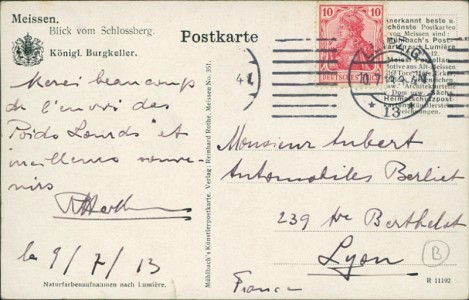 Meissen.
Blick vom Schlossberg.
Königl. Burgkeller.
Postkarte
Merci beaucoup
de l'envoi des
Poids Lourds et
meilleurs souve-
nirs
le 9/7/13
Naturfarbenaufnahmen nach Lumière.
Mühlbach's Künstlerpostkarte. Verlag: Reinhard Rothe, Meissen No. 351.
10 10
DEUTSCHES REICH
* 13 *
Anerkannt beste u.
schönste Postkarten
von Meissen sind
Mühlbach's Post-
nach Lumière
Heimatschutzpost-
Monsieur Aubert
Automobiles Berliet
239 Ave Berthelot
Lyon
France
B
R 11192